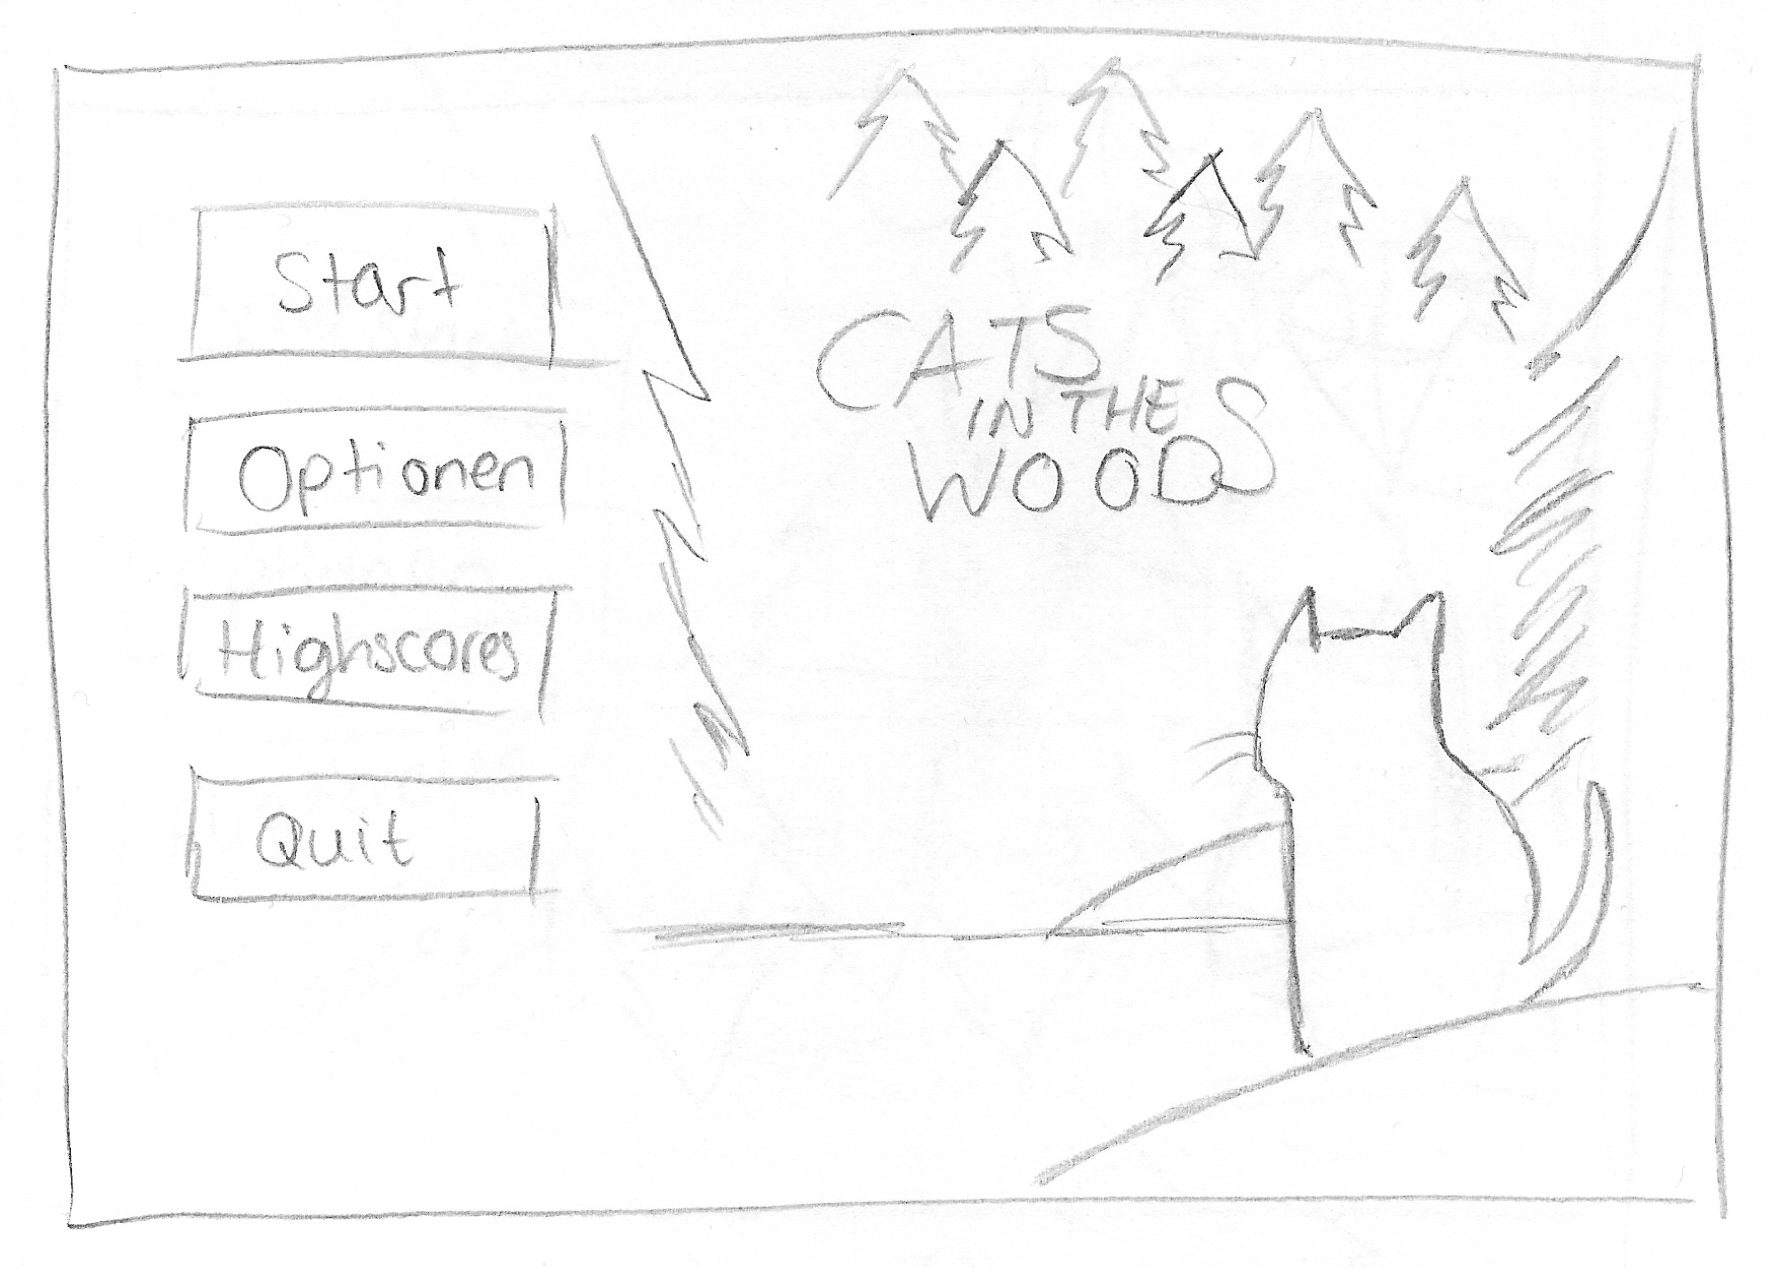 Start
Optionen
Highscores
Quit
CATS
IN THE
WOODS